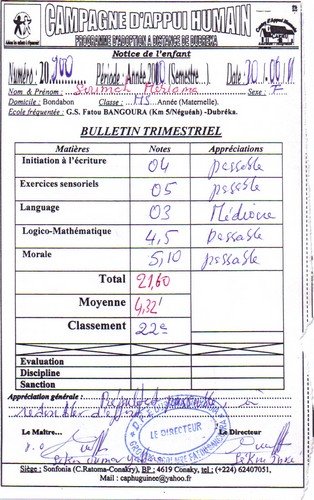 CAMPAGNE D'APPUI HUMAIN
PROGRAMME D'ADOPTION A DISTANCE DE DUBREKA
Notice de l'enfant
Numéro: 20 200 Période: Année 2010 (Semestre...) Date 20
Nom & Prénom: Soumah Mariama Sexe: F
Domicile: Bondabon Classe: MS Année (Maternelle).
Ecole fréquentée: G.S. Fatou BANGOURA (Km 5/Néguéah) -Dubréka.
BULLETIN TRIMESTRIEL
Matières Notes Appréciations
Initiation à l'écriture 04 passable
Exercices sensoriels 05 passable
Language 03 Médiocre
Logico-Mathématique 4,5 passable
Morale 5,10 passable
Total 21,60
Moyenne 4,32
Classement 22e
Evaluation
Discipline
Sanction
Appréciation générale: passable, à
redoubler d'effort
Le Maître... Le Directeur
LE DIRECTEUR
Siège: Sonfonia (C.Ratoma-Conakry), BP: 4619 Conaky, tel: (+224) 62407051,
Mail: caphuguinee@yahoo.fr